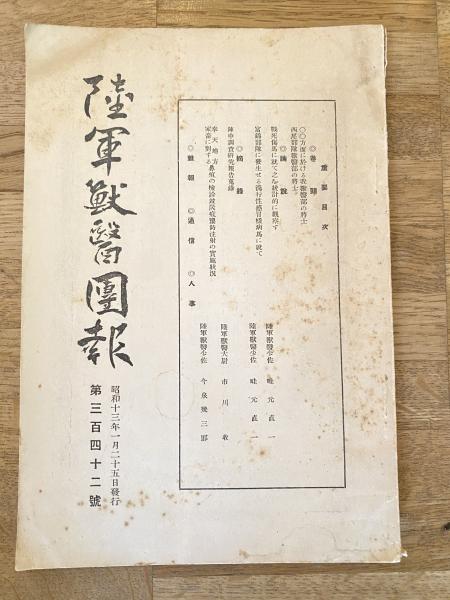 重要目次
◎卷頭
〇〇方面に於ける我獸醫部の將士
西尾部隊獸醫部の將士
◎論說
戰死傷馬に就て之を統計的に觀察す
陸軍獸醫少佐 畦元直一
富錦部隊に發生せる流行性感冒樣病馬に就て
陸軍獸醫少佐 畦元直一
◎摘錄
陣中調査研究報告蒐錄
陸軍獸醫大尉 市川收
奉天地方鼻疽の檢診竝炭疽豫防注射の實施狀況
家畜に對する
陸軍獸醫少佐 今泉幾三郎
◎雜報 ◎通信 ◎人事
陸軍獸醫團報
昭和十三年一月二十五日發行
第三百四十二號